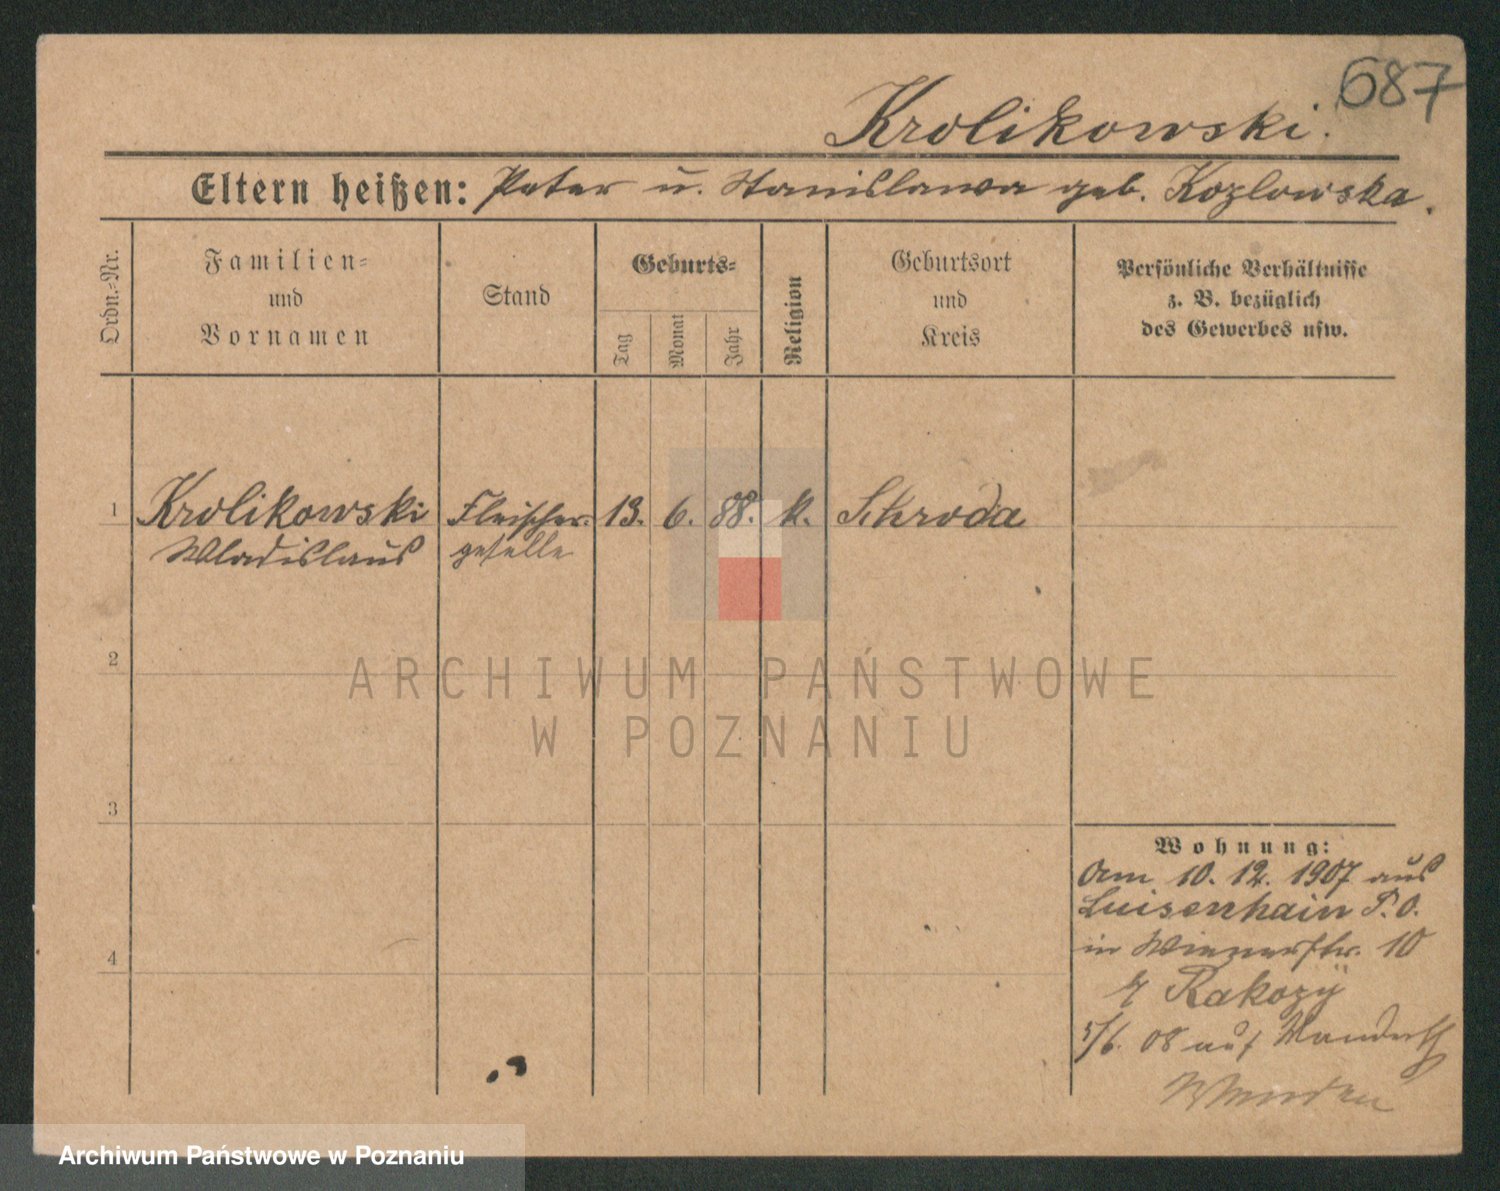 687
Krolikowski.
Eltern heißen: Peter u. Stanislawa geb. Kozlowska.
Ordn.-Nr.
Familien-
und
Vornamen
Stand
Geburts-
Tag
Monat
Jahr
Religion
Geburtsort
und
Kreis
Persönliche Verhältnisse
z. B. bezüglich
des Gewerbes usw.
1 Krolikowski Fleischer- 13. 6. 88. k. Schroda
Wladislaus geselle
2
3
4
Wohnung:
Am 10. 12. 1907 aus
Luisenhain P. O.
in Wienerstr. 10
Rakozy
5/6. 08 auf
ARCHIWUM PAŃSTWOWE
W POZNANIU
Archiwum Państwowe w Poznaniu